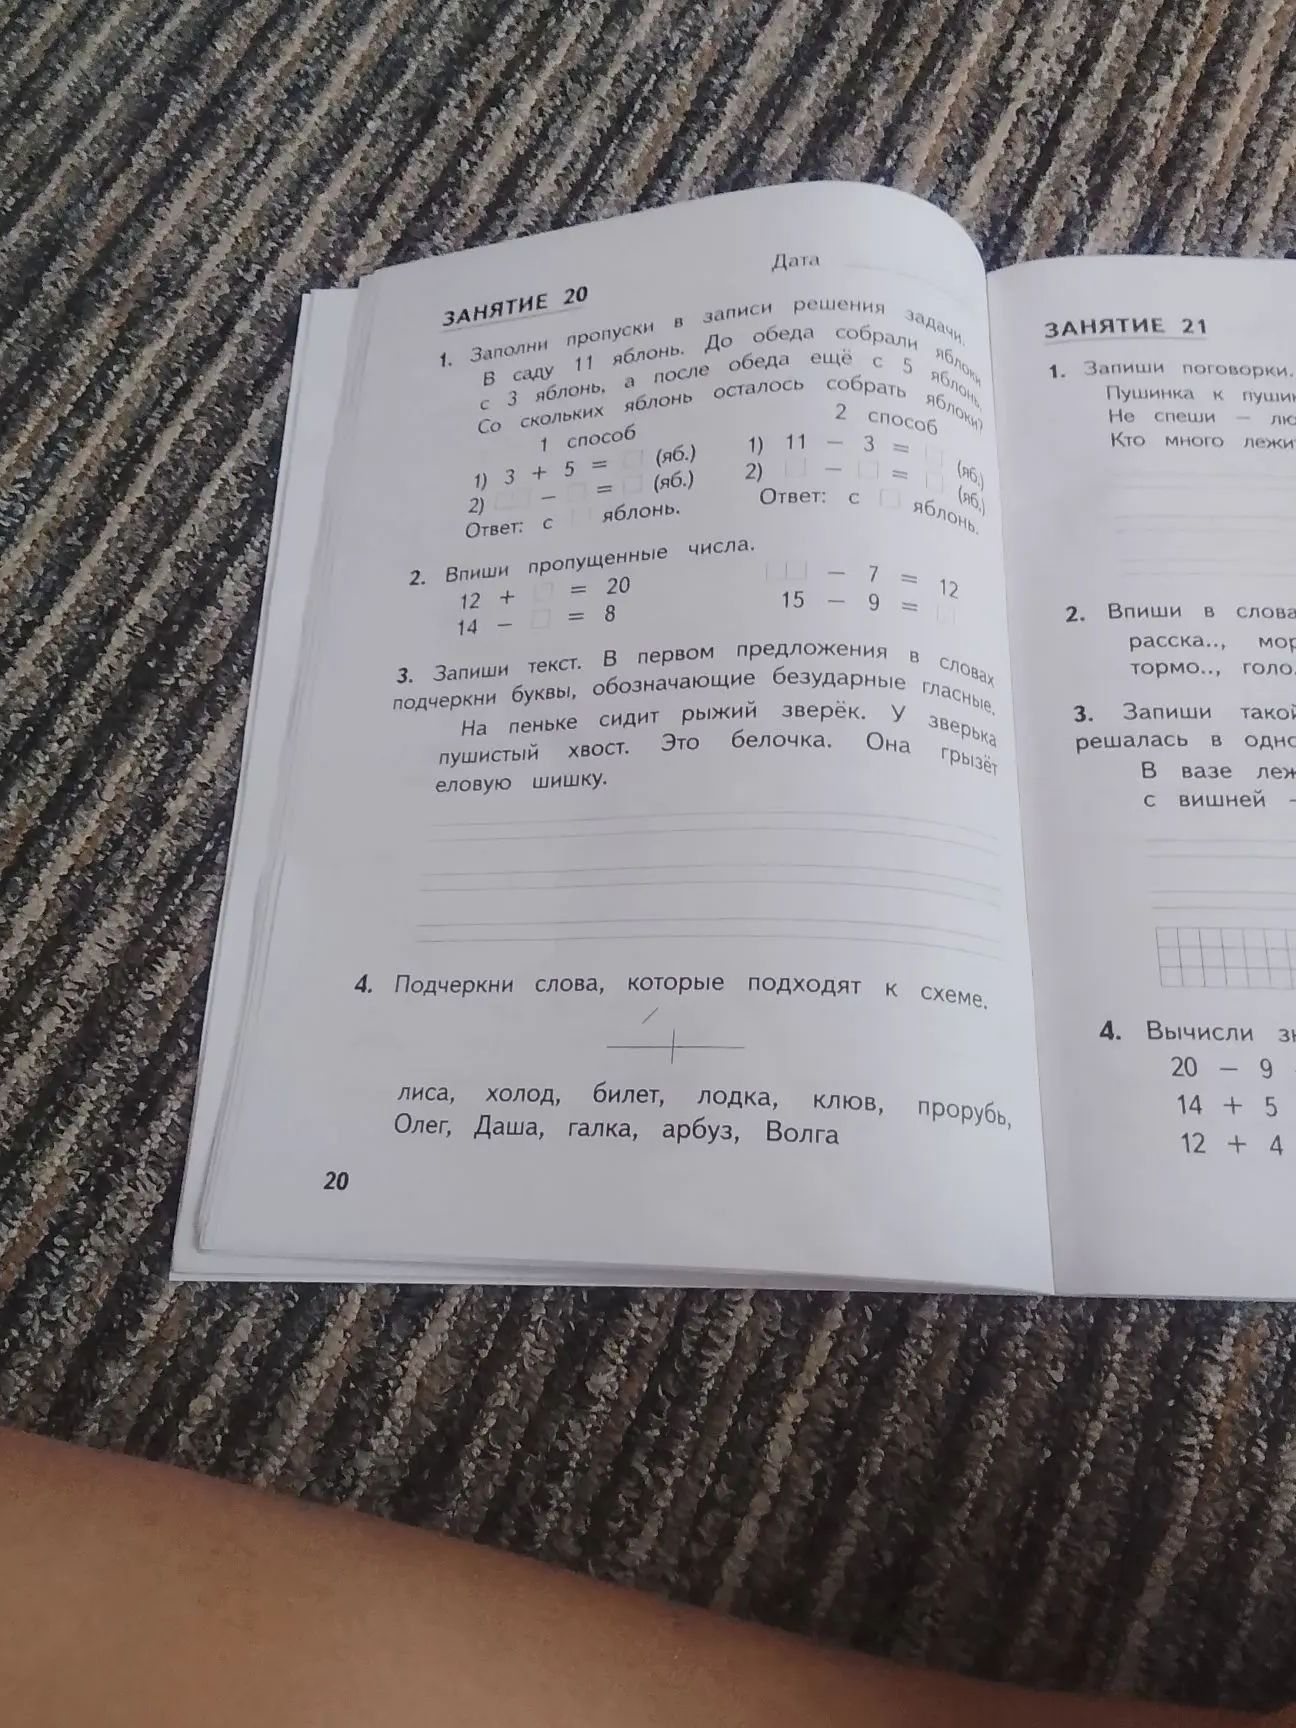 Дата
ЗАНЯТИЕ 20
1. Заполни пропуски в записи решения задачи.
В саду 11 яблонь. До обеда собрали яблоки
с 3 яблонь, а после обеда ещё с 5 яблонь.
Со скольких яблонь осталось собрать яблоки?
1 способ
1) 3 + 5 = □ (яб.)
2) □□ − □ = □ (яб.)
Ответ: с □ яблонь.
2 способ
1) 11 − 3 = □ (яб.)
2) □ − □ = □ (яб.)
Ответ: с □ яблонь.
2. Впиши пропущенные числа.
12 + □ = 20
14 − □ = 8
□□ − 7 = 12
15 − 9 = □
3. Запиши текст. В первом предложения в словах
подчеркни буквы, обозначающие безударные гласные.
На пеньке сидит рыжий зверёк. У зверька
пушистый хвост. Это белочка. Она грызёт
еловую шишку.
4. Подчеркни слова, которые подходят к схеме.
лиса, холод, билет, лодка, клюв, прорубь,
Олег, Даша, галка, арбуз, Волга
20
ЗАНЯТИЕ 21
1. Запиши поговорки.
Пушинка к
Не спеши –
Кто много
2. Впиши в
расска..,
тормо..,
3. Запиши
решалась в
В вазе
с вишней –
4. Вычисли
20 − 9
14 + 5
12 + 4